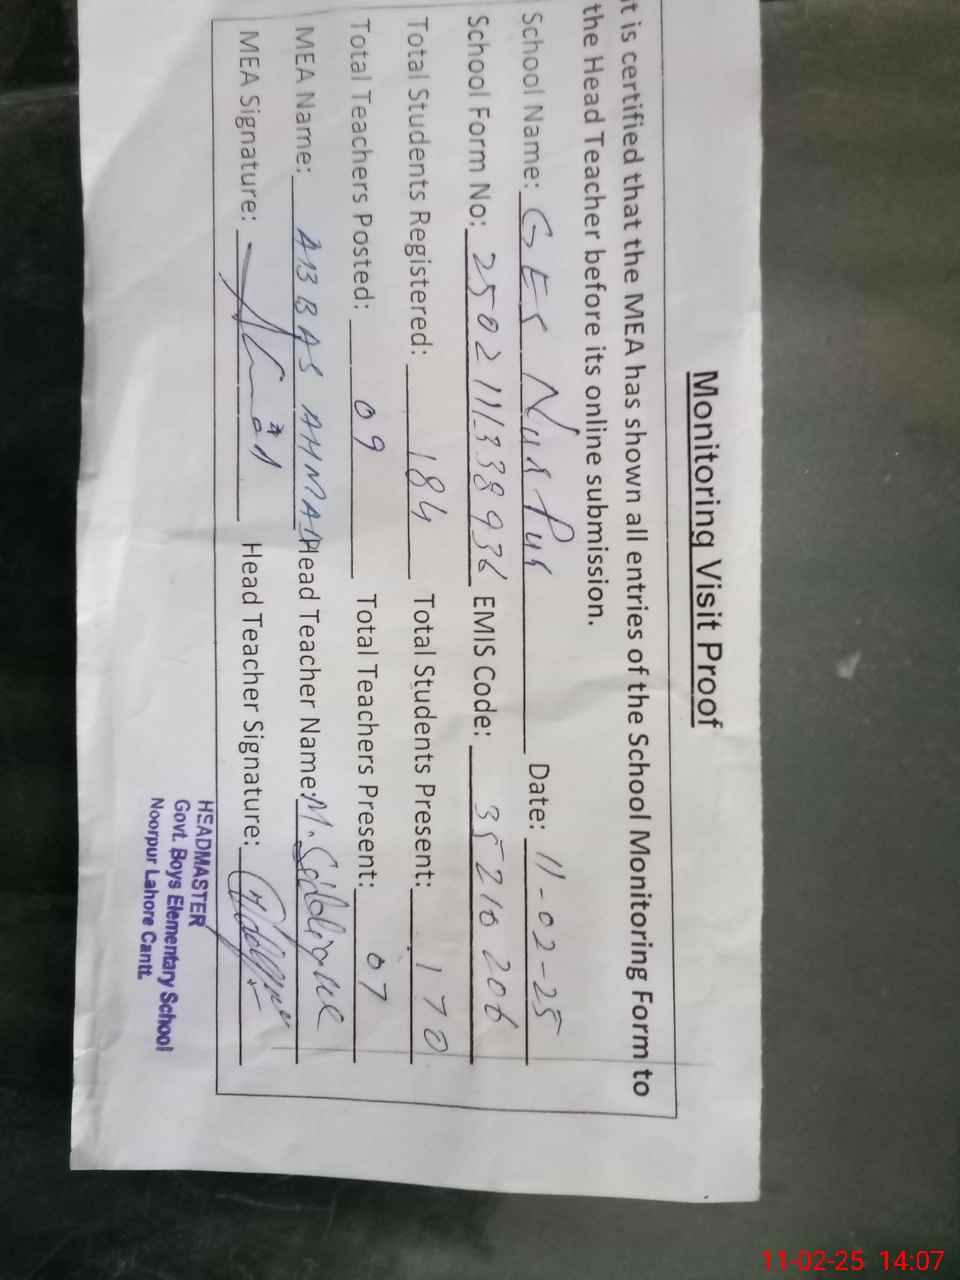 Monitoring Visit Proof
It is certified that the MEA has shown all entries of the School Monitoring Form to
the Head Teacher before its online submission.
School Name: GES Nur Pur Date: 11-02-25
School Form No: 250211133893 EMIS Code: 35210206
Total Students Registered: 184 Total Students Present: 170
Total Teachers Posted: 09 Total Teachers Present: 07
MEA Name: ABBAS AHMAD Head Teacher Name: M. Siddique
MEA Signature: Head Teacher Signature:
HEADMASTER
Govt. Boys Elementary School
Noorpur Lahore Cantt.
11-02-25 14:07